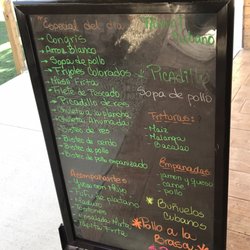 Especial del dia
Congris
Arroz Blanco
Sopa de pollo
Frijoles Colorados
Masa Frita
Filete de Pescado
Picadillo de res
Chuleta a la plancha
Chuleta Ahumada
Bistec de res
Bistec de cerdo
Bistec de pollo
Bistec de pollo empanizado
Acompañantes
Yuca con Mojo
Tostones
Papita Frita
Cubano
Picadillo
Sopa de pollo
Frituras:
Maiz
Malanga
Bacalao
Empanadas
jamon y queso
carne
pollo
Buñuelos
Cubanos
Pollo a la
Brasa y